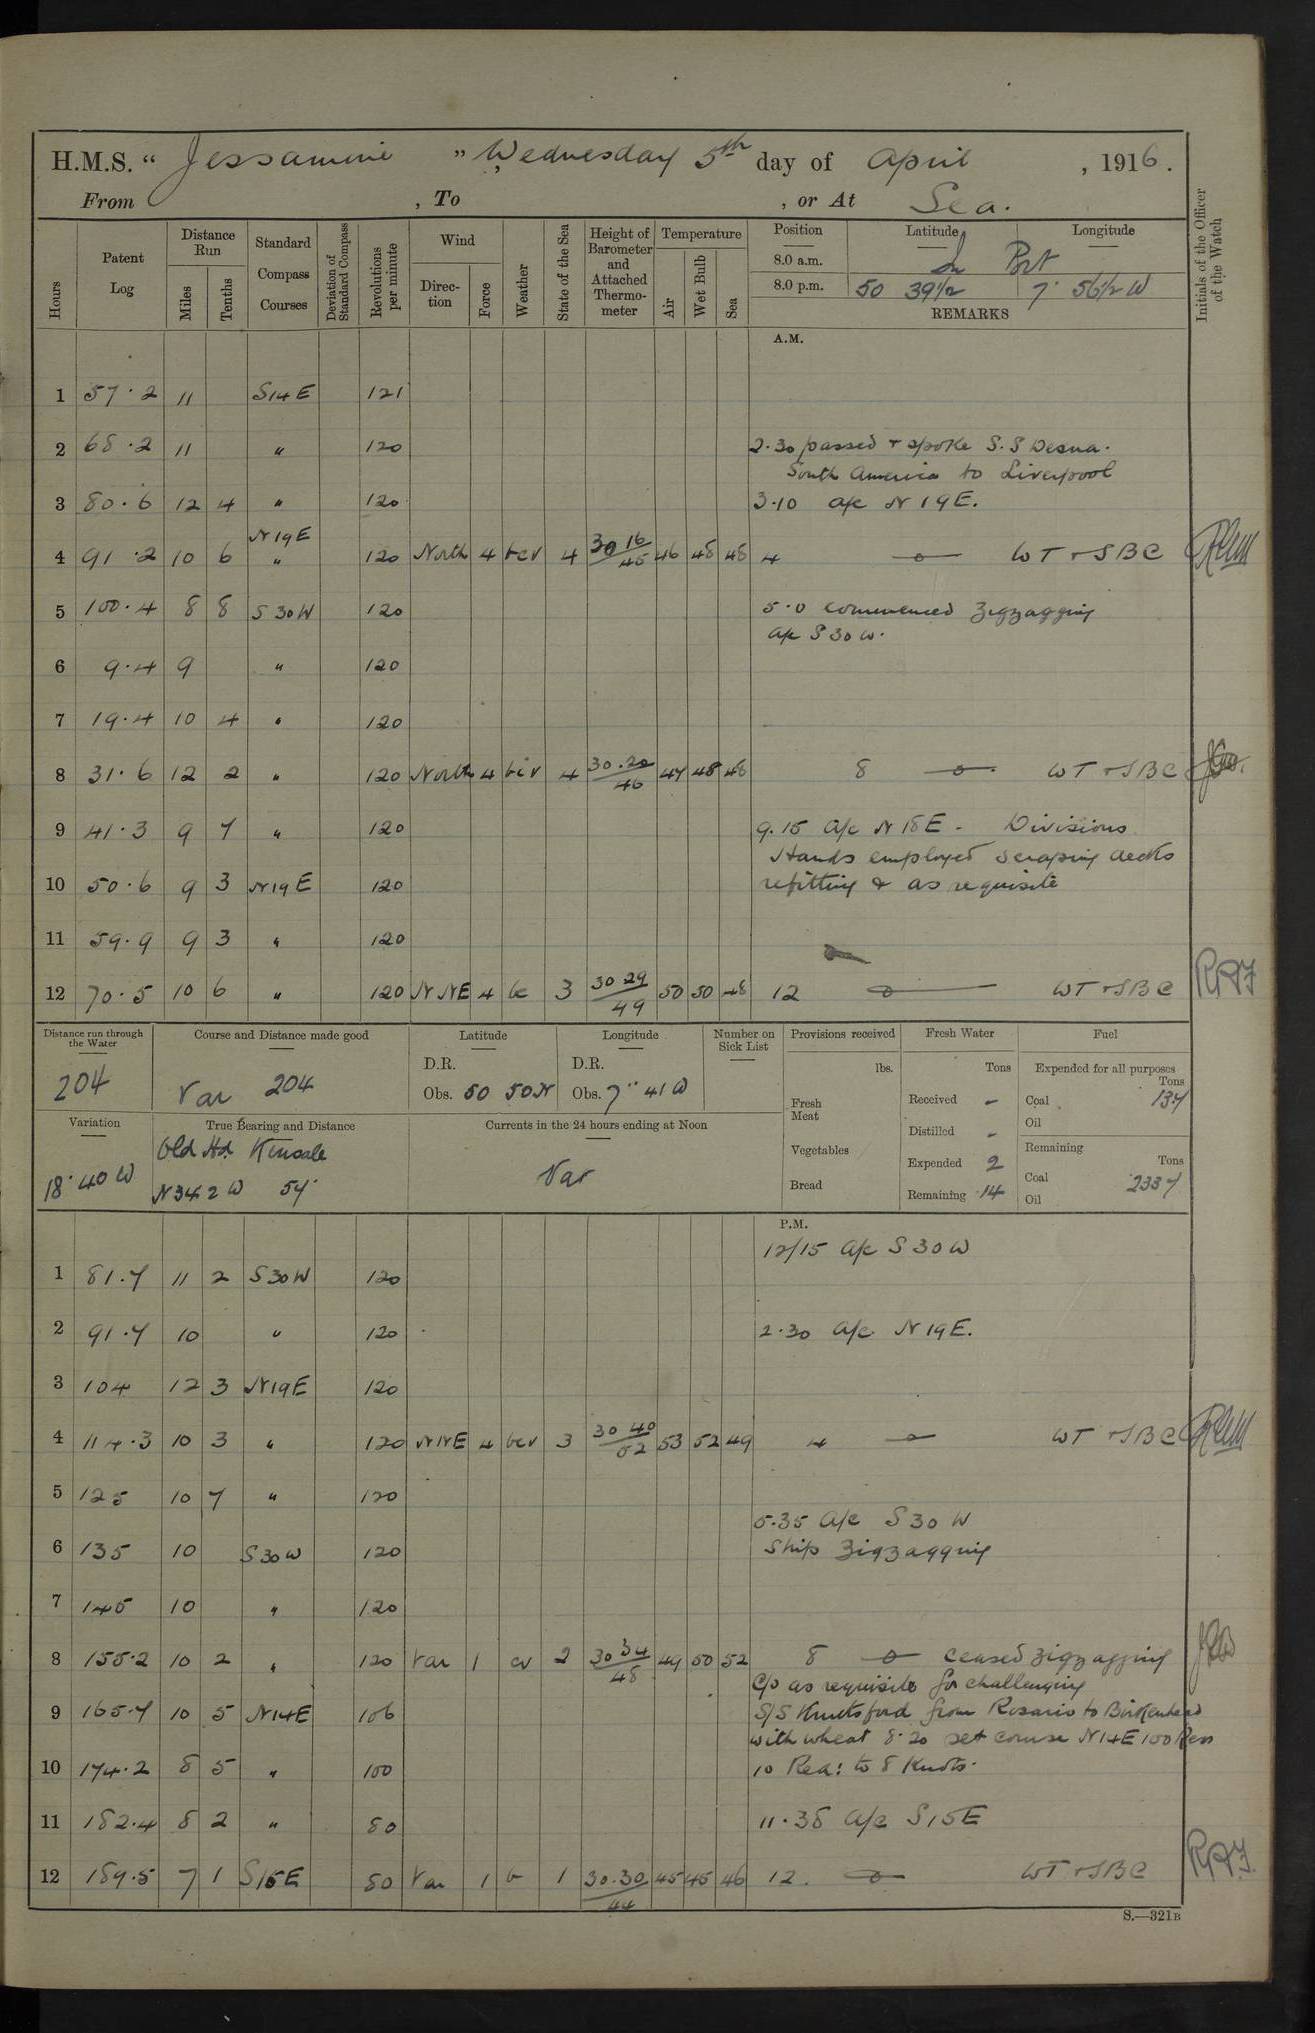 H.M.S. “ Jessamine ” Wednesday 5th day of April , 1916.
From , To , or At Sea.
Hours Patent Log Distance Run Miles Tenths Standard Compass Courses Deviation of Standard Compass Revolutions per minute Wind Direction Force Weather State of the Sea Height of Barometer and Attached Thermometer Temperature Air Wet Bulb Sea Position Latitude Longitude Initials of the Officer of the Watch
8.0 a.m. In Port
8.0 p.m. 50 39½ 7° 56½ W
REMARKS
A.M.
1 57.2 11 S14E 121
2 68.2 11 " 120 2.30 passed + spoke S.S Desna.
South America to Liverpool
3 80.6 12 4 " 120 3.10 a/c N19E.
N19E
4 91.2 10 6 " 120 North 4 bcv 4 30 16/45 46 48 48 4 WT + SBC
5 100.4 8 8 S30W 120 5.0 commenced zigzagging
a/c S30W.
6 9.4 9 " 120
7 19.4 10 4 " 120
8 31.6 12 2 " 120 North 4 bcv 4 30.20/46 47 48 48 8 WT + SBC
9 41.3 9 7 " 120 9.15 a/c N18E - Divisions
Hands employed scraping decks
10 50.6 9 3 N19E 120 refitting & as requisite
11 59.9 9 3 " 120
12 70.5 10 6 " 120 NNE 4 bc 3 30 29/49 50 50 48 12 WT + SBC
Distance run through the Water Course and Distance made good Latitude Longitude Number on Sick List Provisions received Fresh Water Fuel
204 Var 204 D.R. D.R. lbs. Tons Expended for all purposes Tons
Obs. 50 50N Obs. 7° 41 W Fresh Meat Received - Coal 13.7
Oil
Variation True Bearing and Distance Currents in the 24 hours ending at Noon Distilled - Remaining Tons
18° 40 W Old Hd. Kinsale Var Vegetables Expended 2 Coal 233.7
N34 2 W 54' Bread Remaining 14 Oil
P.M.
12/15 a/c S30W
1 81.7 11 2 S30W 120
2 91.7 10 " 120 2.30 a/c N19E.
3 104 12 3 N19E 120
4 114.3 10 3 " 120 NNE 4 bcv 3 30 40/52 53 52 49 4 WT + SBC
5 125 10 7 " 120
5.35 a/c S30W
6 135 10 S30W 120 Ship zigzagging
7 145 10 " 120
8 155.2 10 2 " 120 Var 1 cv 2 30 34/48 49 50 52 8 ceased zigzagging
C/o as requisite for challenging
9 165.7 10 5 N14E 106 S/S Knutsford from Rosario to Birkenhead
with wheat 8.20 set course N14E 100 Revs
10 174.2 8 5 " 100 10 Red: to 8 Knots.
11 182.4 8 2 " 80 11.38 a/c S15E
12 189.5 7 1 S15E 80 Var 1 b 1 30.30/44 45 45 46 12. WT + SBC
S.—321B